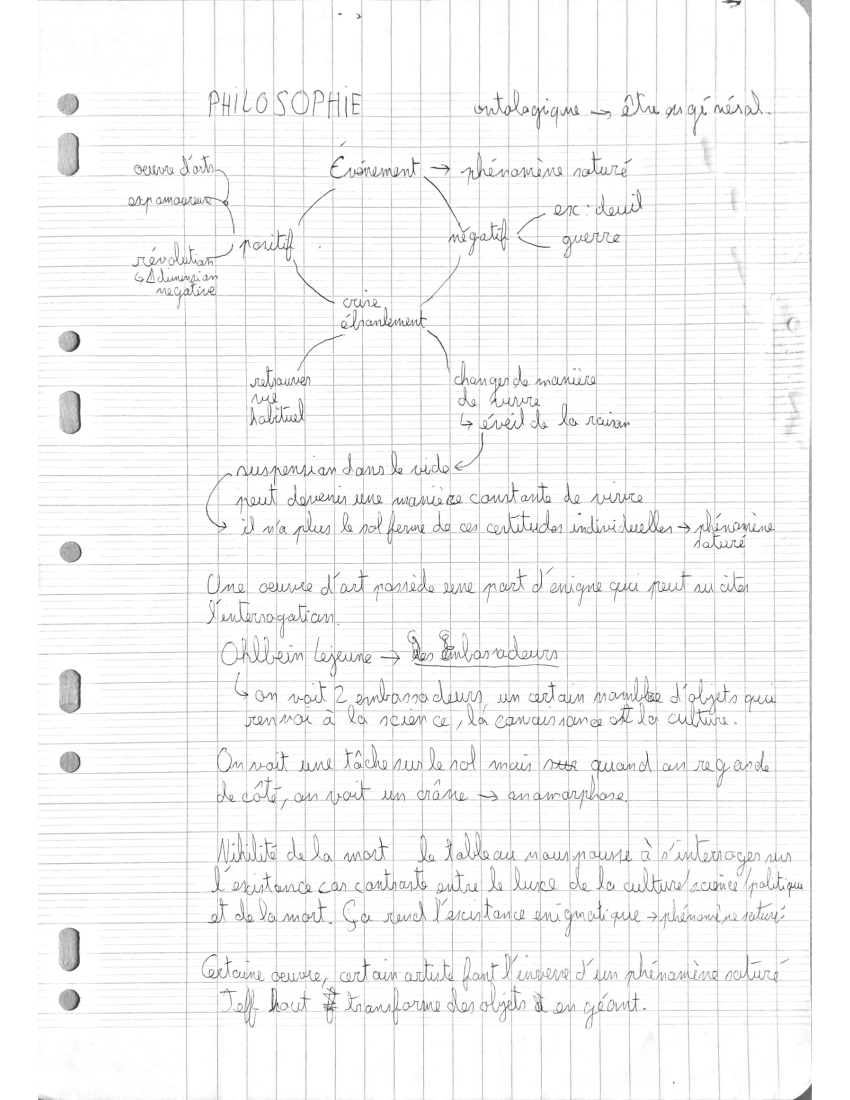 PHILOSOPHIE
ontologique → être en général.
Événement → phénomène saturé
oeuvre d'arts
exp amoureux
positif
négatif
ex : deuil
guerre
révolution
↳ Δ dimension
negative
crise,
ébranlement
retrouver
vie
habituel
changer de manière
de vivre
↳ éveil de la raison
suspension dans le vide
peut devenir une manière constante de vivre
il n'a plus le sol ferme de ces certitudes individuelles → phénomène
saturé
Une oeuvre d'art possède une part d'énigne qui peut suciter
l'interrogation.
Ohlbein Lejeune → Les Embassadeurs
↳ on voit 2 embassadeurs, un certain nombre d'objets qui
renvoi à la science, la connaissance et la culture.
On voit une tâche sur le sol mais quand on regarde
de côté, on voit un crâne → anamorphose.
Nihilité de la mort le tableau nous pousse à s'interroger sur
l'existance car contraste entre le luxe de la culture/science/politique
et de la mort. Ça rend l'existance enigmatique → phénomène saturé
Certaine oeuvre, certain artiste font l'inverse d'un phénomène saturé
Jeff hout transforme des objets en géant.